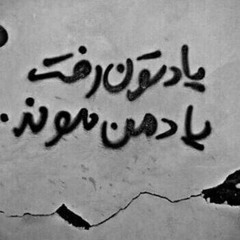 یادتون رفت
یا دهن موند.